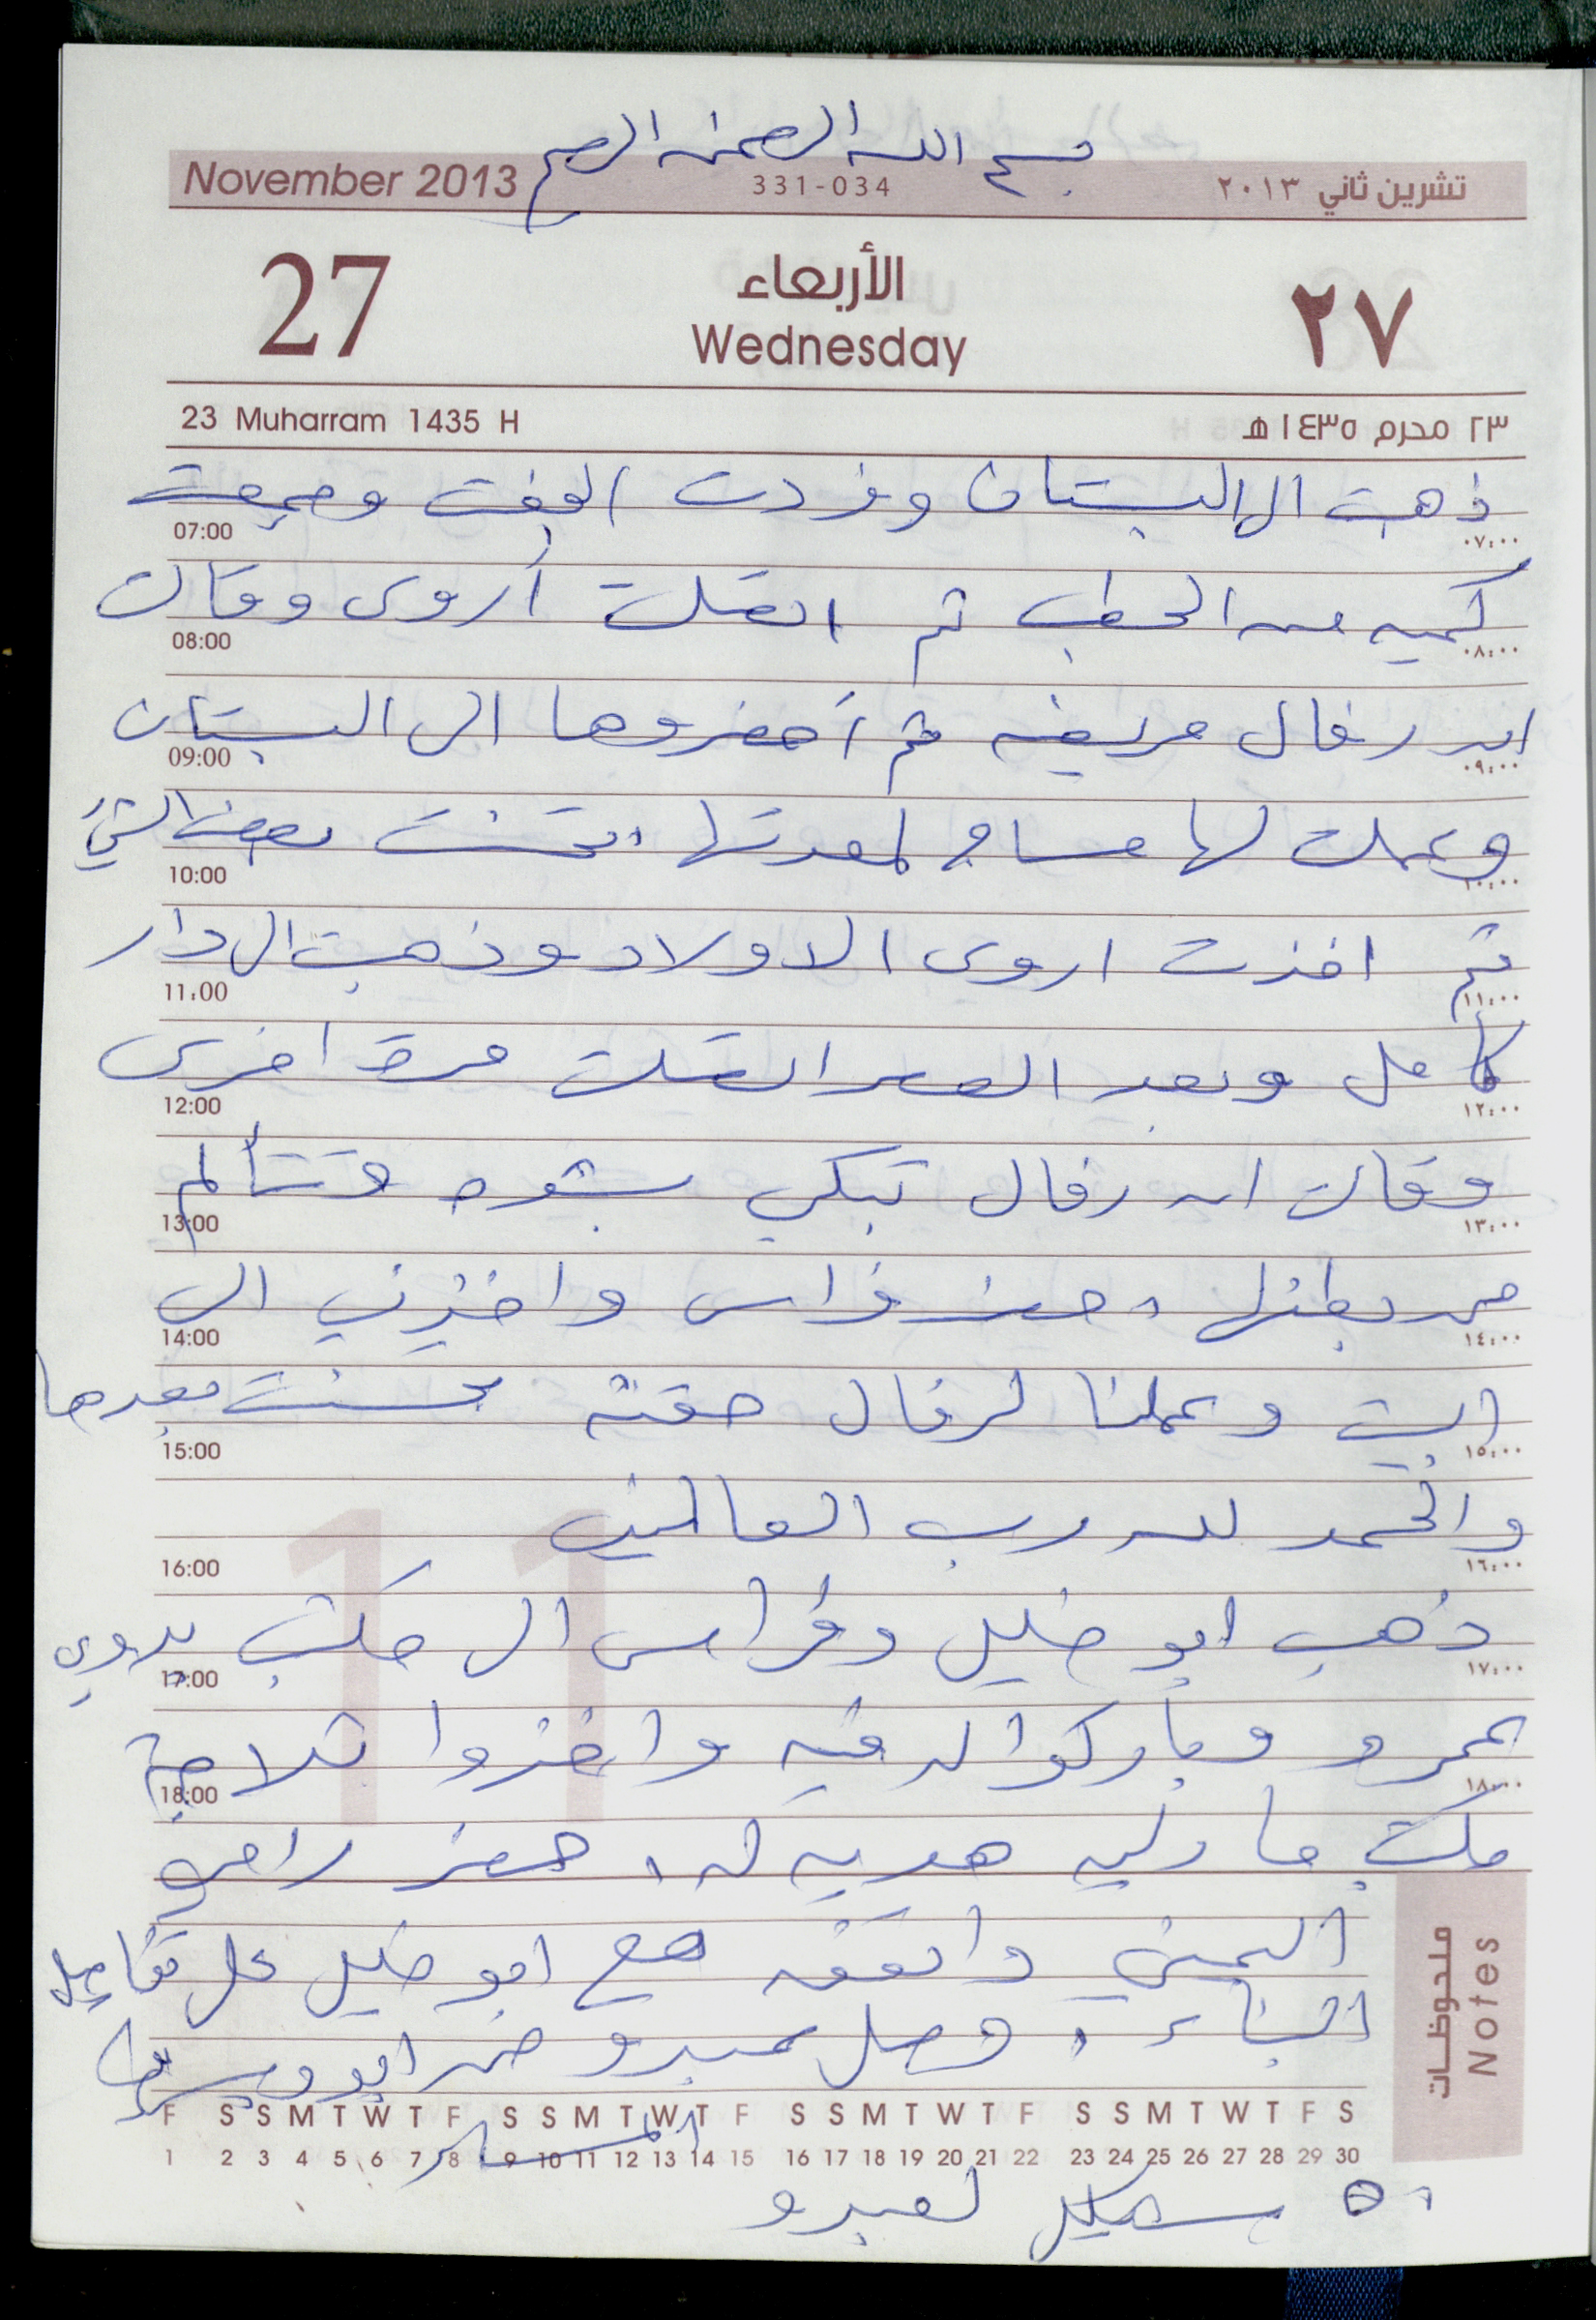 بسم الله الرحمن الرحيم
November 2013 331-034 تشرين ثاني ٢٠١٣
27 الأربعاء ٢٧
Wednesday
23 Muharram 1435 H ٢٣ محرم ١٤٣٥ هـ
ذهبت الى البستان وفردت الجفت وجمعت
07:00 ٠٧:٠٠
كميه من الحطب ثم اتصلت أروى وقالت
08:00 ٠٨:٠٠
ان رفال مريضه ثم أحضروها الى البستان
09:00 ٠٩:٠٠
وعملت لها مساج لمعدتها تحسنت بعض الشيء
10:00 ١٠:٠٠
ثم اخذت اروى الاولاد وذهبت الى دار
11:00 ١١:٠٠
كامل وبعد العصر اتصلت مرة اخرى
12:00 ١٢:٠٠
وقالت ان رفال تبكي بشده وتتألم
13:00 ١٣:٠٠
من بطنها ، حضر فراس واخذني الى
14:00 ١٤:٠٠
البيت وعملنا لرفال حقنة تحسنت بعدها
15:00 ١٥:٠٠
والحمد لله رب العالمين
16:00 ١٦:٠٠
ذهب ابو خليل وفراس الى مكتب بدوي
17:00 ١٧:٠٠
عمرو وباركوا له فيه واخذوا ثلاجة
18:00 ١٨:٠٠
مكتب هديه له ، حضر رامي
اليمني واتفق مع ابو خليل على تفاصيل
البناء ، وصل عبدو من ابو
المساء
ملحوظات
Notes
F S S M T W T F S S M T W T F S S M T W T F S S M T W T F S
1 2 3 4 5 6 7 8 9 10 11 12 13 14 15 16 17 18 19 20 21 22 23 24 25 26 27 28 29 30
٥٠ شيكل لعبدو